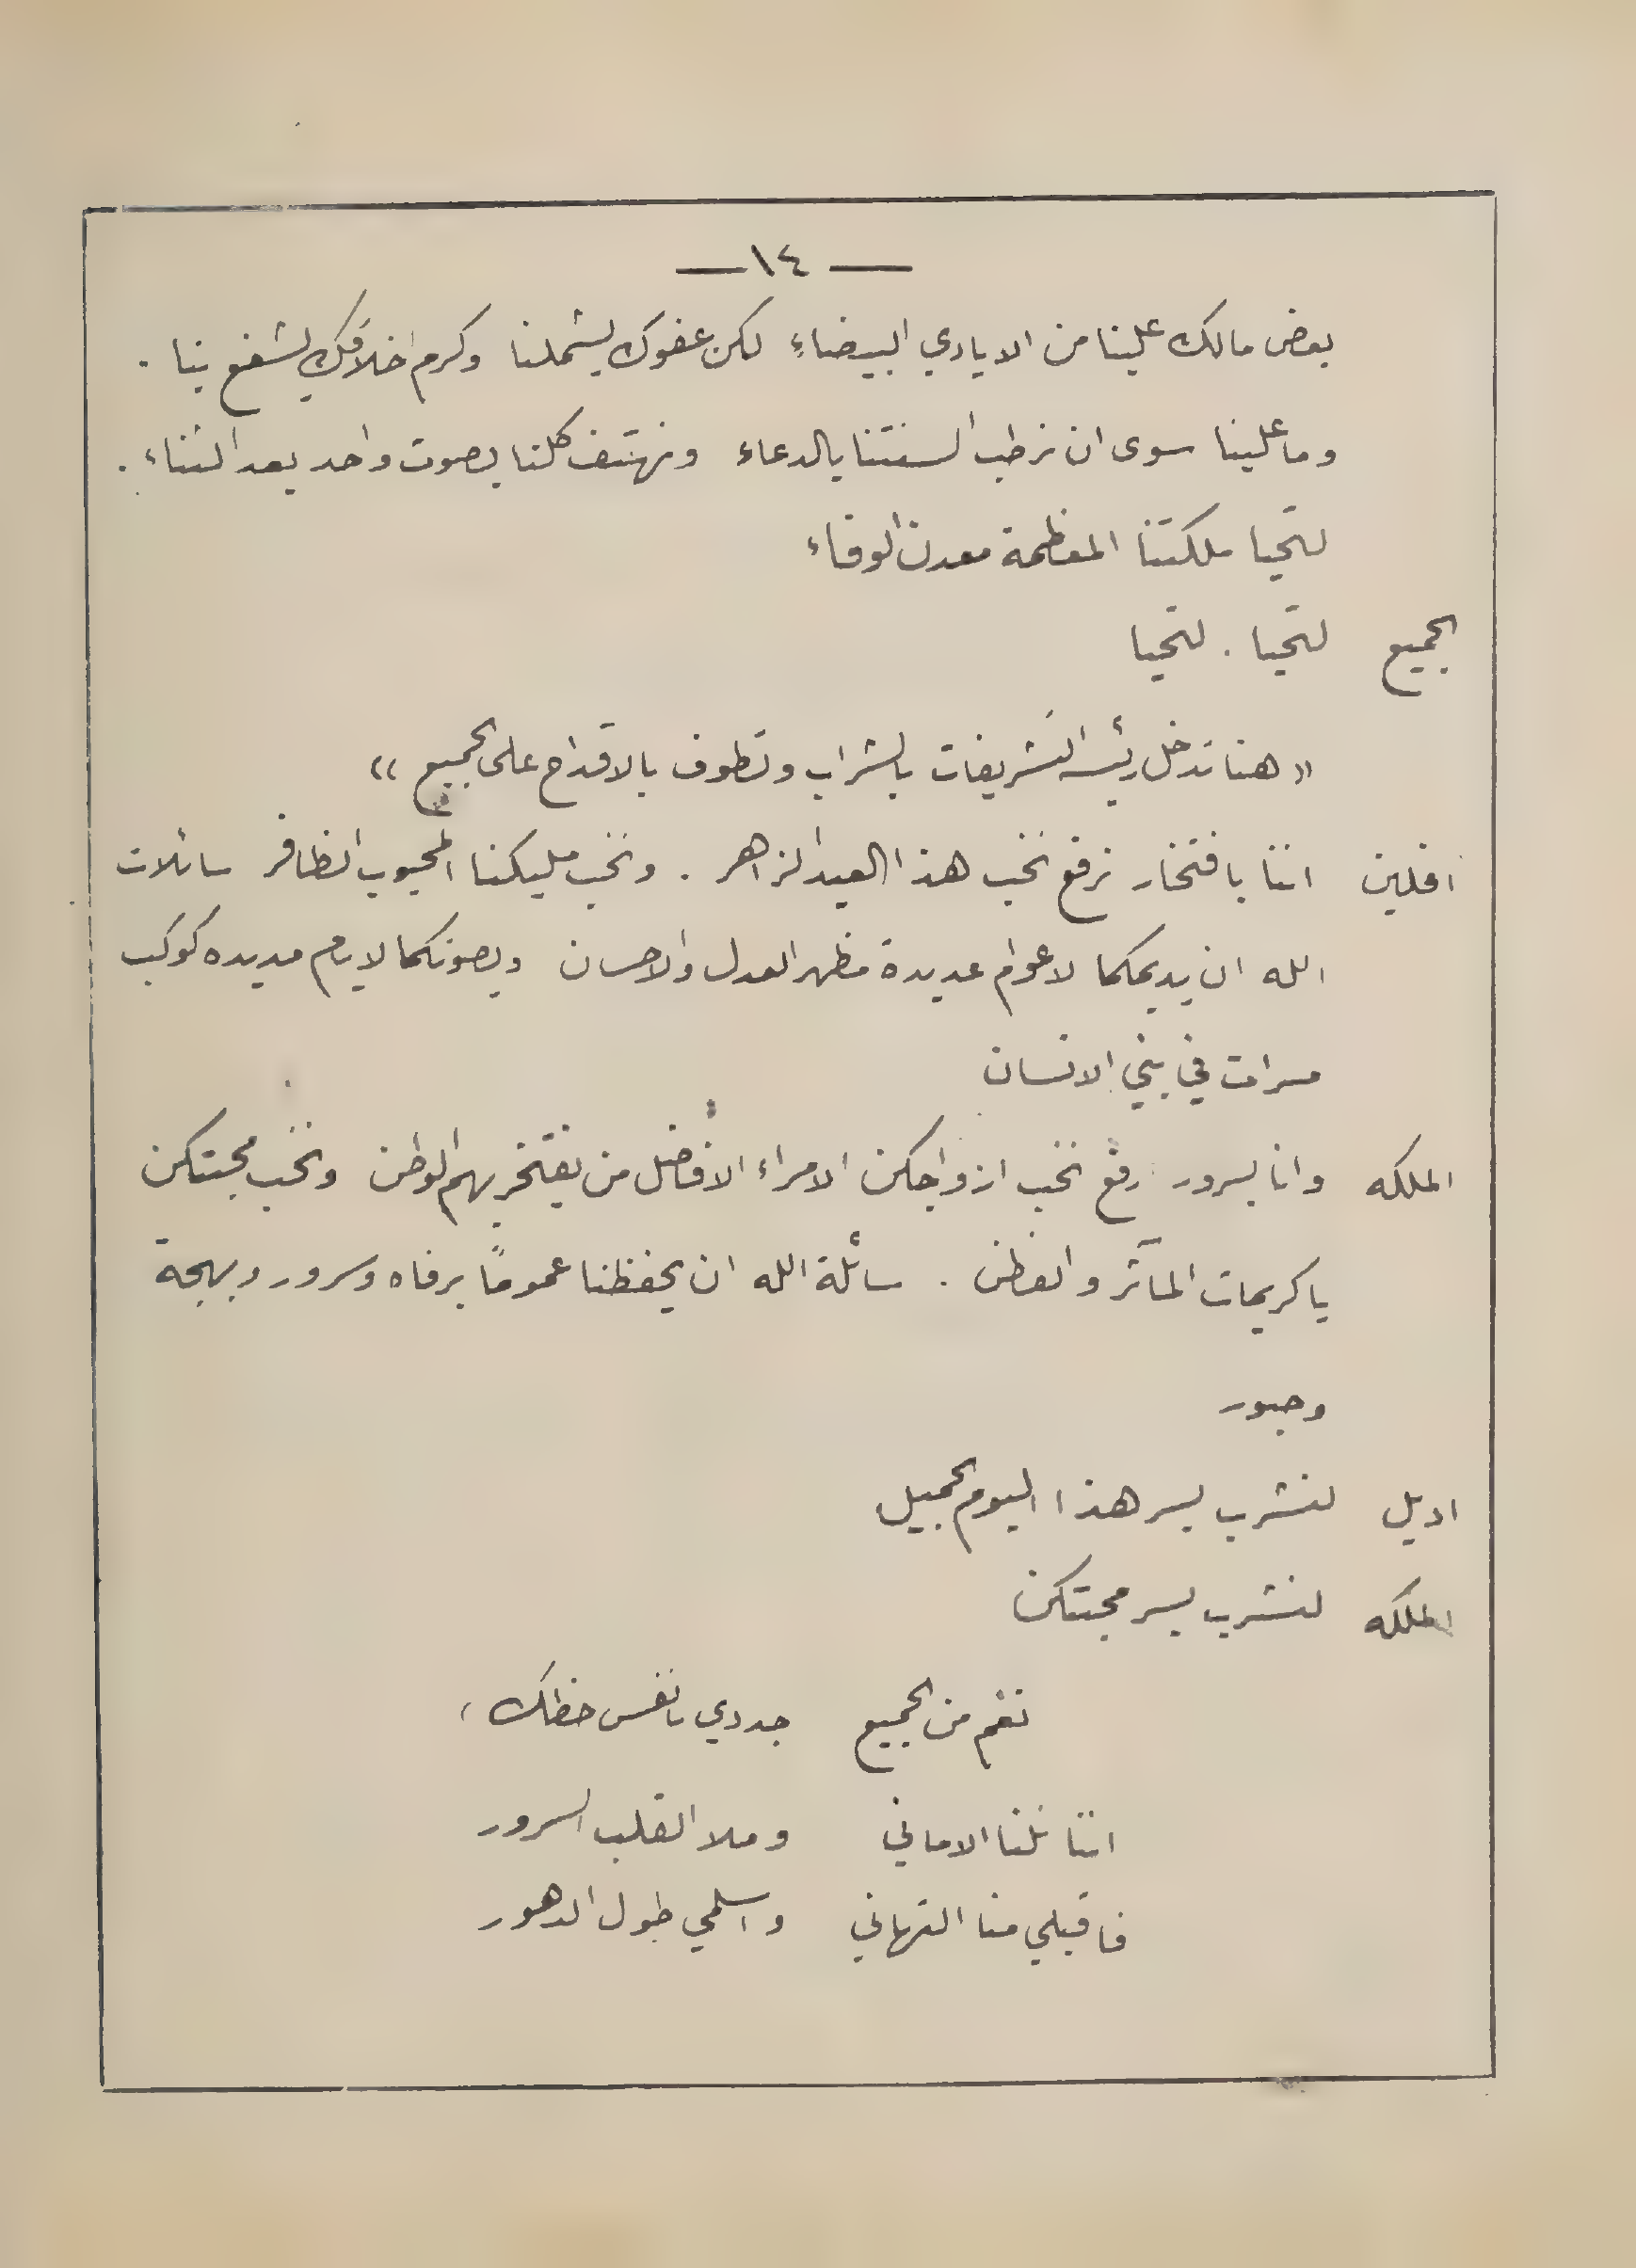 — ١٤ —
بعض مالك علينا من الايادي البيضاءِ لكن عفوك يشملنا وكرم اخلاقك يشفع بنا .
وما علينا سوى ان نرطب السنتنا بالدعاء ونهتف كلنا بصوت واحد بعد الثناء .
لتحيا ملكتنا المعظمة معدن الوفاء
الجميع لتحيا . لتحيا
« هنا تدخل رئيسة التشريفات بالشراب وتطوف بالاقداح على الجميع »
افلين اننا بافتخار نرفع نخب هذا العيد الزاهر . ونخب مليكنا المحبوب الظافر سائلات
الله ان يديمكما لاعوام عديدة مظهر العدل والاحسان ويصونكما لايام مديده كوكب
مسرات في بني الانسان
الملكه وانا بسرور ارفع نخب ازواجكن الامراء الافاضل من يفتخر بهم الوطن ونخب محبتكن
يا كريمات المآثر والفطن . سائلة الله ان يحفظنا عموماً برفاه وسرور وبهجة
وحبور
اديل لنشرب بسر هذا اليوم الجميل
الملكه لنشرب بسر محبتكن
نغم من الجميع جددي يا نفس حظك ،
اننا نلنا الاماني وملا القلب السرور
فاقبلي منا التهاني واسلمي طول الدهور